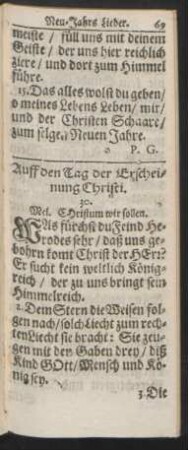 Neu-Jahrs Lieder. 69
meiste / füll uns mit deinem
Geiste / der uns hier reichlich
ziere / und dort zum Himmel
führe.
15. Das alles wolst du geben /
o meines Lebens Leben / mir /
und der Christen Schaare /
zum selgē Neuen Jahre.
P. G.
Auff den Tag der Erschei-
nung Christi.
30.
Mel. CHristum wir sollen.
WAs fürchst du Feind He-
rodes sehr / daß uns ge-
bohrn komt Christ der HErr?
Er sucht kein weltlich König-
reich / der zu uns bringt sein
Himmelreich.
2. Dem Stern die Weisen fol-
gen nach / solch Liecht zum rech-
ten Liecht sie bracht: Sie zeu-
gen mit den Gaben drey / diß
Kind GOtt / Mensch und Kö-
nig sey.
3. Die